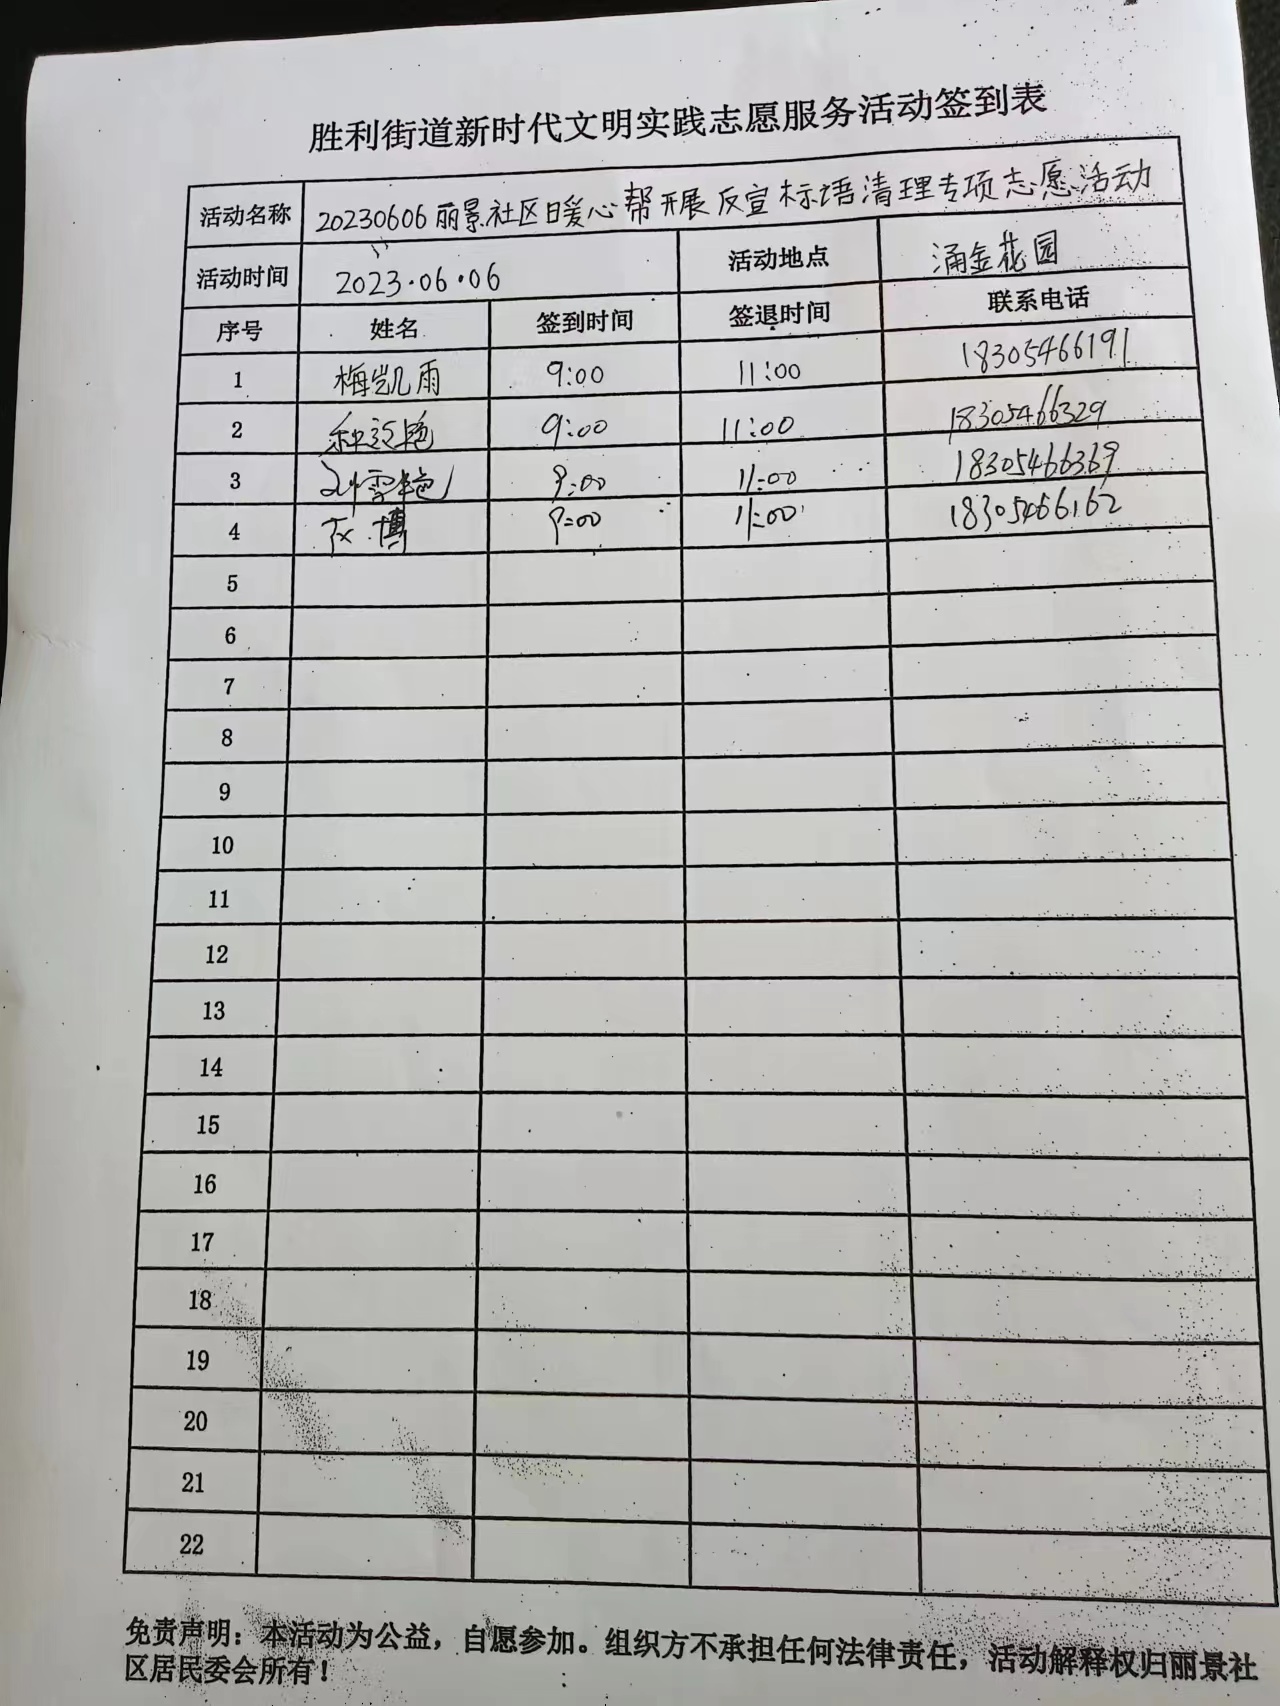 胜利街道新时代文明实践志愿服务活动签到表
活动名称 20230606丽景社区暖心帮开展反宣标语清理专项志愿活动
活动时间 2023.06.06 活动地点 涌金花园
序号 姓名 签到时间 签退时间 联系电话
1 梅凯雨 9:00 11:00 18305466191
2 9:00 11:00 18305466329
3 刘雪艳 9:00 11:00 18305466369
4 博 9:00 11:00 18305466162
5
6
7
8
9
10
11
12
13
14
15
16
17
18
19
20
21
22
免责声明：本活动为公益，自愿参加。组织方不承担任何法律责任，活动解释权归丽景社
区居民委会所有！